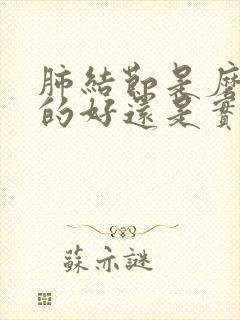 肺結節是磨
的好還是實
蘇亦謎